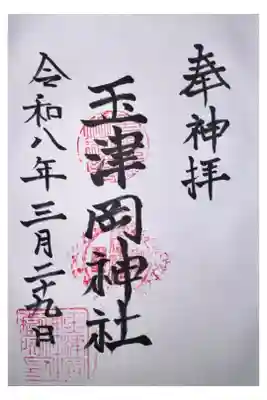 奉神拝
玉津岡神社
令和八年三月二十九日